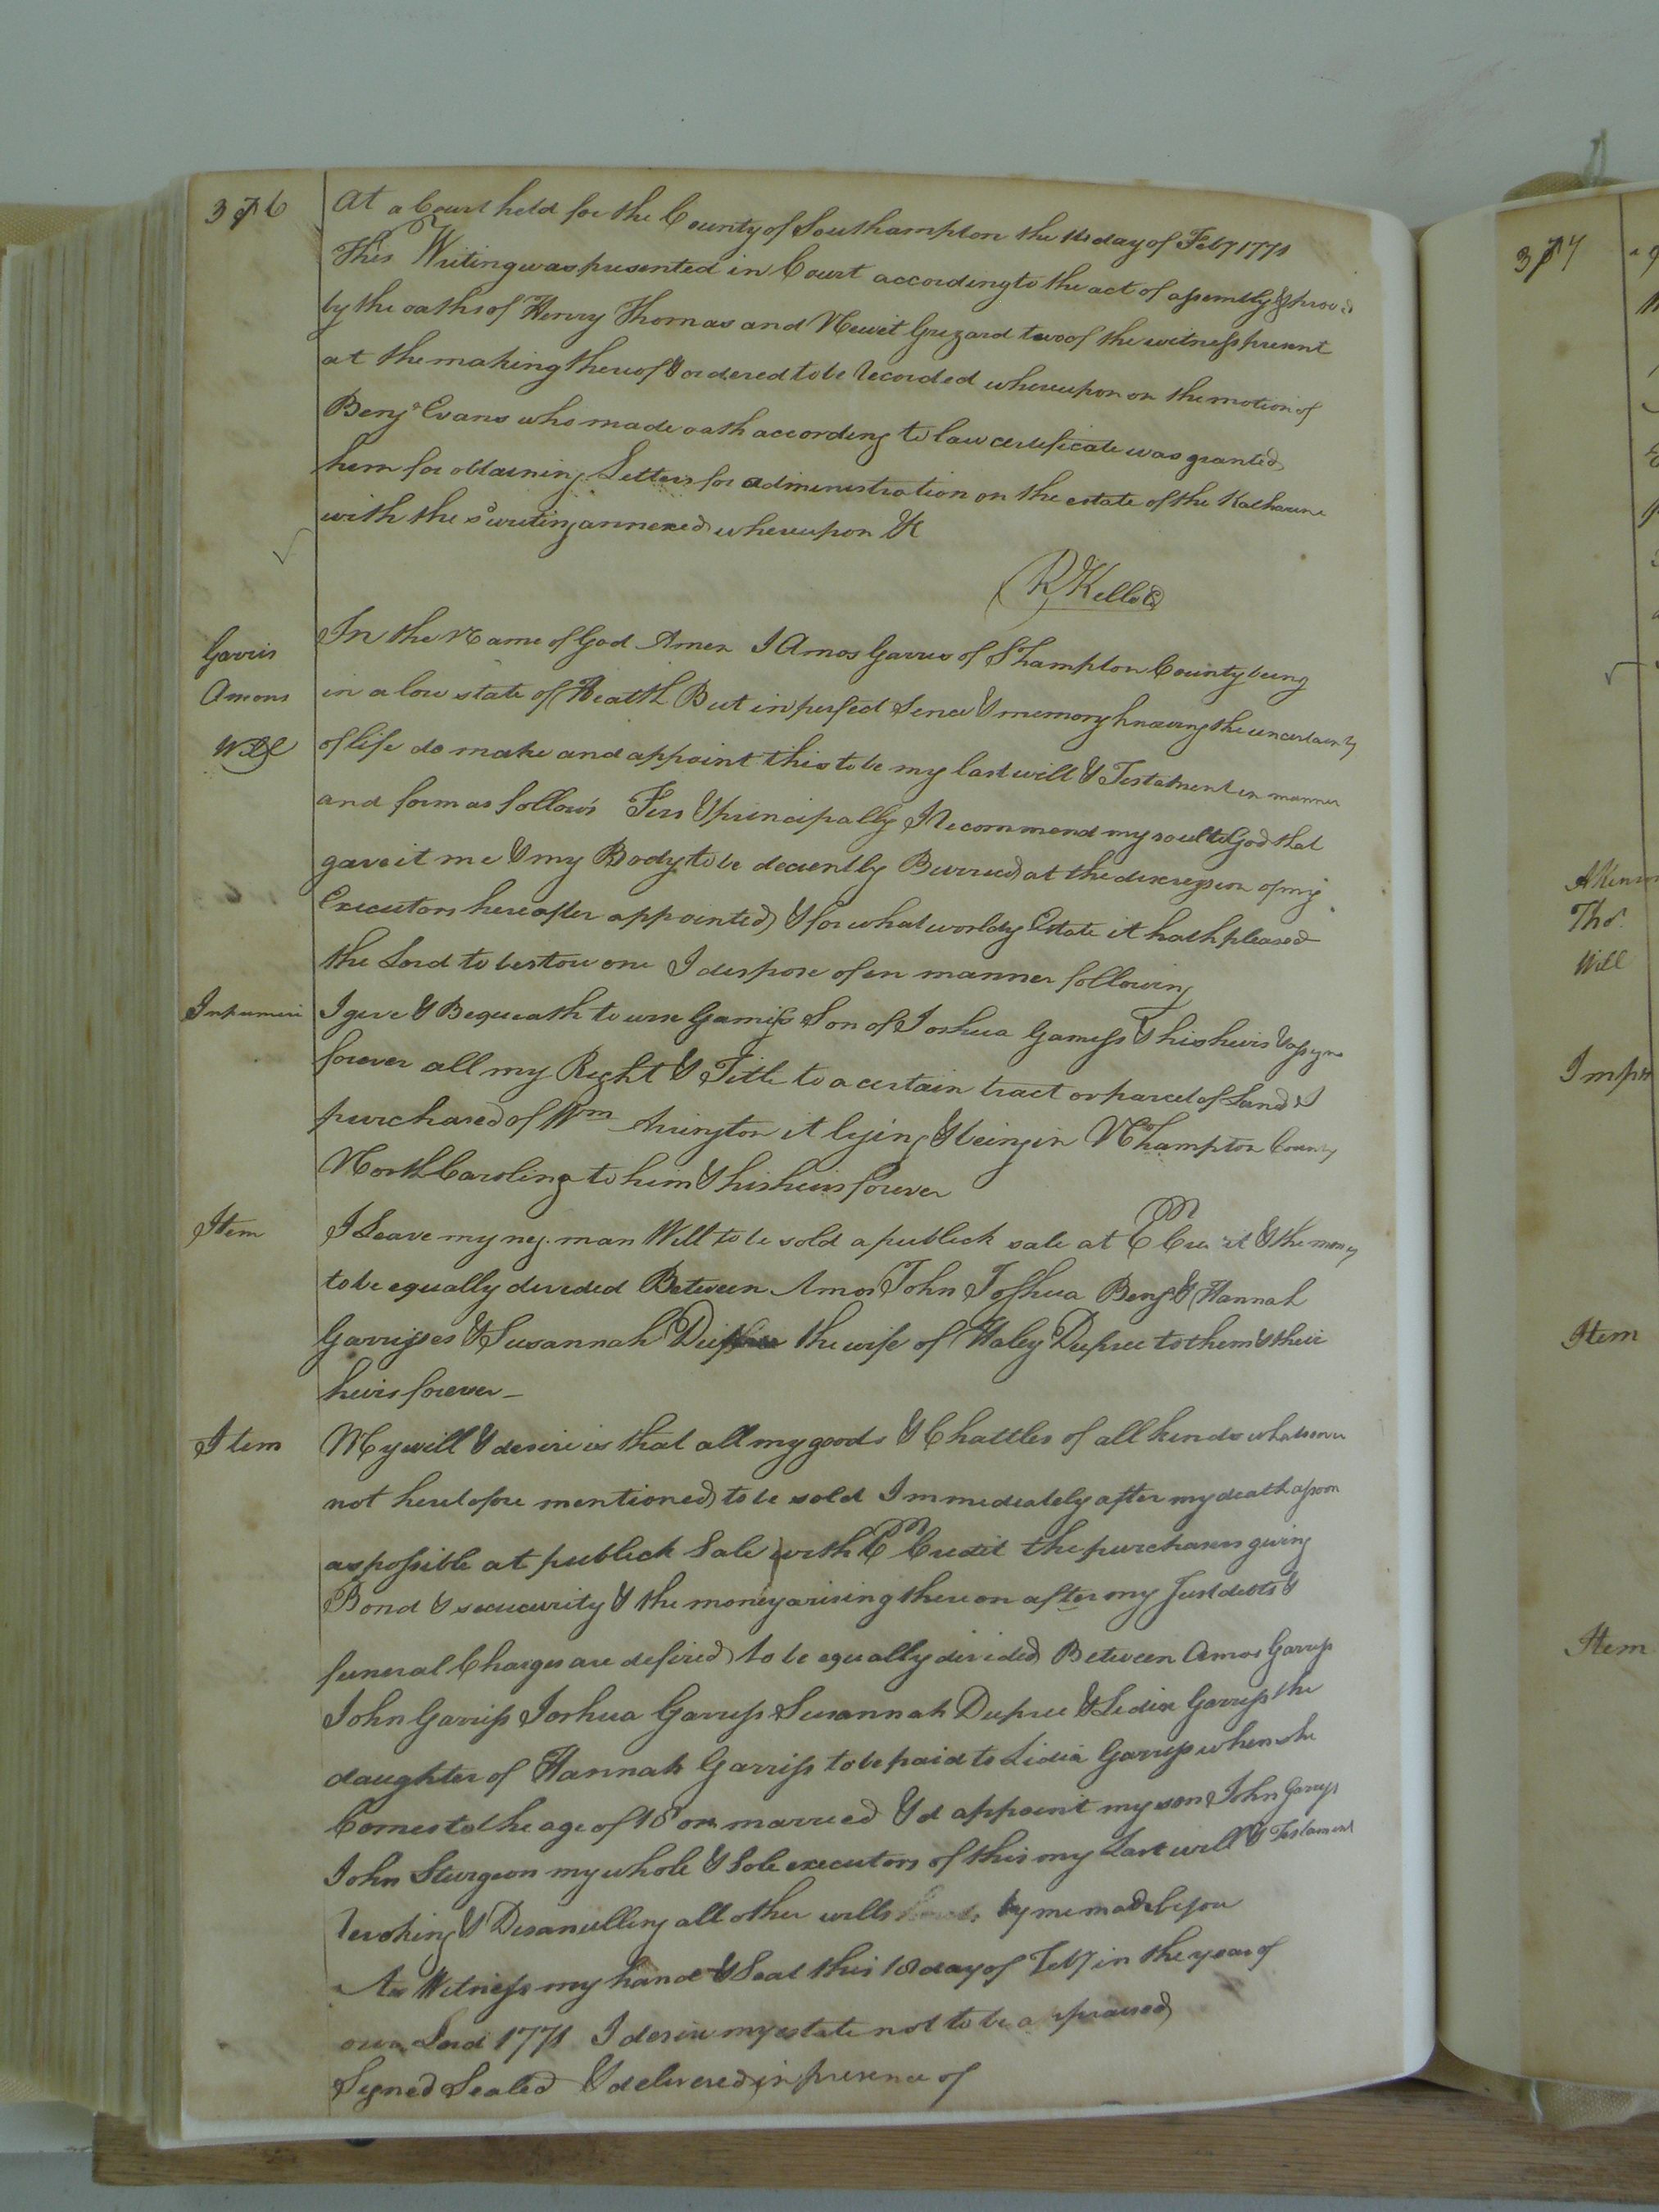 376
At a Court held for the County of Southampton the 14 day of Feby 1771
This Writing was presented in Court according to the act of assembly & proved
by the oaths of Henry Thomas and Newit Grizard two of the witness present
at the making thereof & ordered to be Recorded whereupon on the motion of
Benj<sup>a</sup> Evans who made oath according to law certificate was granted
him for obtaining Letters for administration on the estate of the Katharine
with the s<sup>d</sup> writing annexed whereupon &c
R Kello
Garris
Amons
Will
In the Name of God Amen I Amos Garris of S hampton County being
in a low state of Heatth But in perfect Sence & memory knowing the uncertainty
of life do make and appoint this to be my last will & Testament in manner
and form as follows Firs & principally I Recommend my soul to God that
gave it me & my Body to be decently Burried at the discresion of my
Executors hereafter appointed & for what worldy Estate it hath pleased
the Lord to bestow one I dispose of in manner following
I give & Bequeath to Garriss Son of Joshua Garriss & his heirs & assigns
forever all my Right & Title to a certain tract or parcel of Land I
purchased of W<sup>m</sup> Arington it lying & being in N hampton County
North Carolina to him & his heirs forever
Item
I Leave my neg. man Will to be sold a publick sale at & the money
to be equally divided Between Amos John Joshua Benj & Hannah
Garrisses & Susannah the wife of Haley Dupree to them & their
heirs forever —
Item
My will & desire is that all my goods & Chattles of all kinds whatsoever
not heretofore mentioned to be sold Immediately after my death as soon
as possible at publick Sale with Credit the purchasers giving
Bond & secucurity & the money arising there on after my Just debts &
funeral Charges are to be equally divided Between Amos Garriss
John Garriss Joshua Garriss Susannah Dupree & Lidia Garriss the
daughter of Hannah Garriss to be paid to Lidia Garriss when she
Comes to the age of 18 or married & d appoint my son John Garriss
John Sturgeon my whole & Sole executors of this my Last will & Testament
revoking & Disanulling all other wills by me made before
As Witness my hand & Seal this 18 day of Feby in the year of
our Lord 1771 I desire my estate not to be a praised
Signed Sealed & delivered in presence of
377
Tho<sup>s</sup>
Will
Item
Item